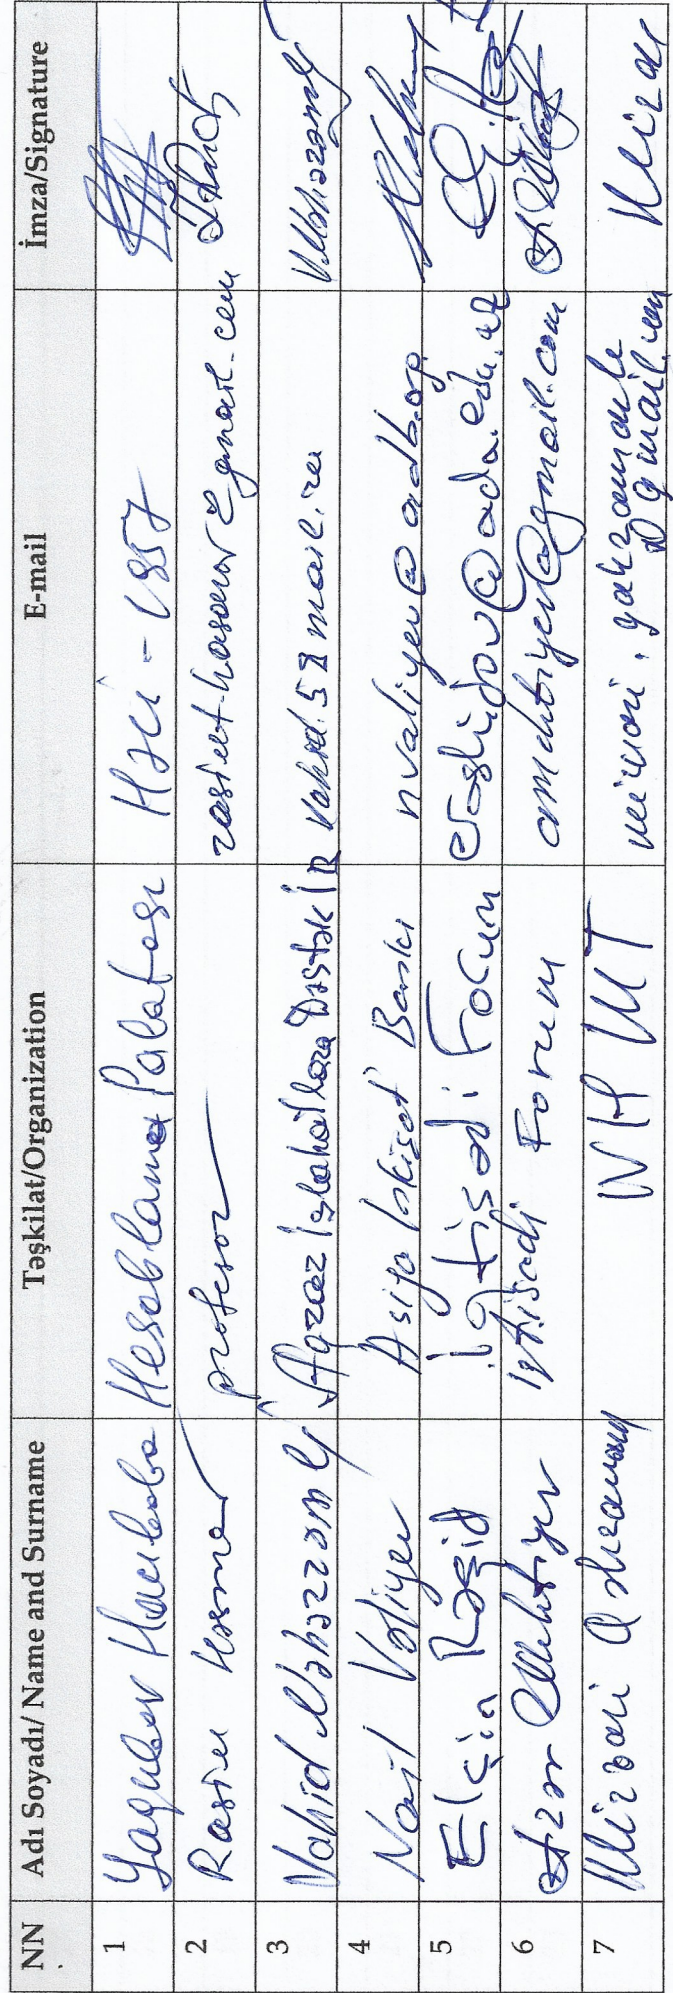 NN Adı Soyadı/ Name and Surname Təşkilat/Organization E-mail İmza/Signature
1 Yaqubov Hacıbaba Hesablama Palatası Haci-1957
2 Rasim Həsənov professor rasim-hasanov@gmail.com
3 Vahid Məhərrəmli Aqrar İslahatlara Dəstək İB vahid.52mail.ru V.Məhərrəmli
4 Nail Vəliyev Asiya İnkişaf Bankı nvaliyev@adb.org
5 Elçin Rəşid İqtisadi Forum erashidov@ada.edu.az
6 Azər Mehtiyev İqtisadi Forum amehtiyev@gmail.com
7 Mirvari Qəhrəmanlı NHMT mirvari.gahramanli@gmail.com